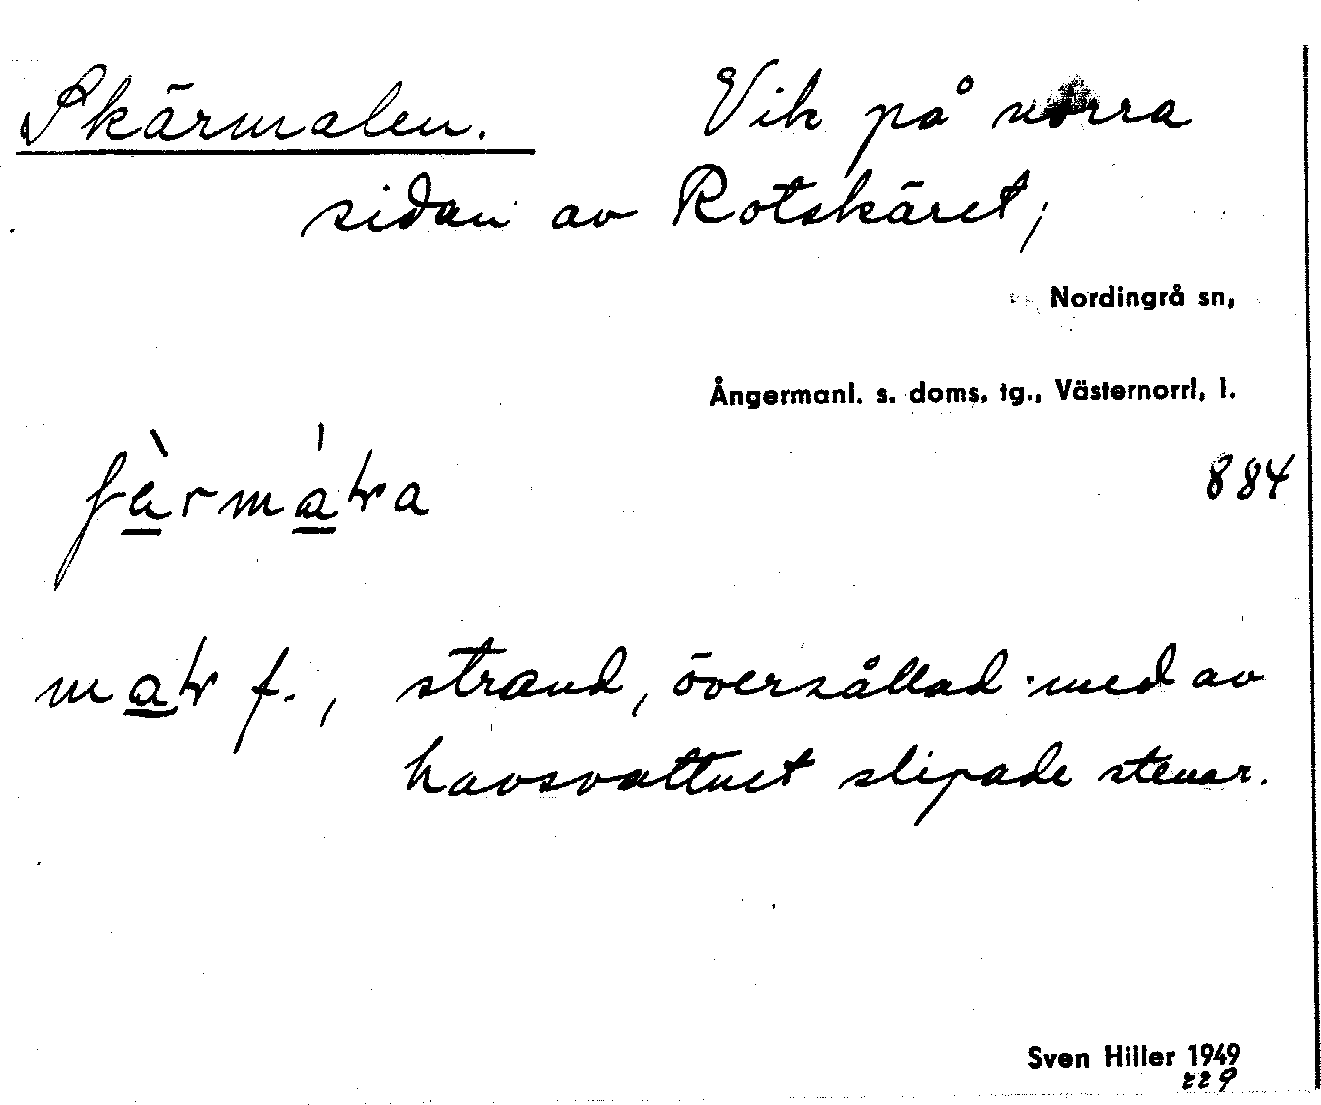 Skärmalen. Vik på norra
sidan av Rotskäret;
Nordingrå sn,
Ångermanl. s. doms. tg., Västernorrl. l.
884
f.,
strand, översållad med av
havsvattnet slipade stenar.
Sven Hiller 1949
229